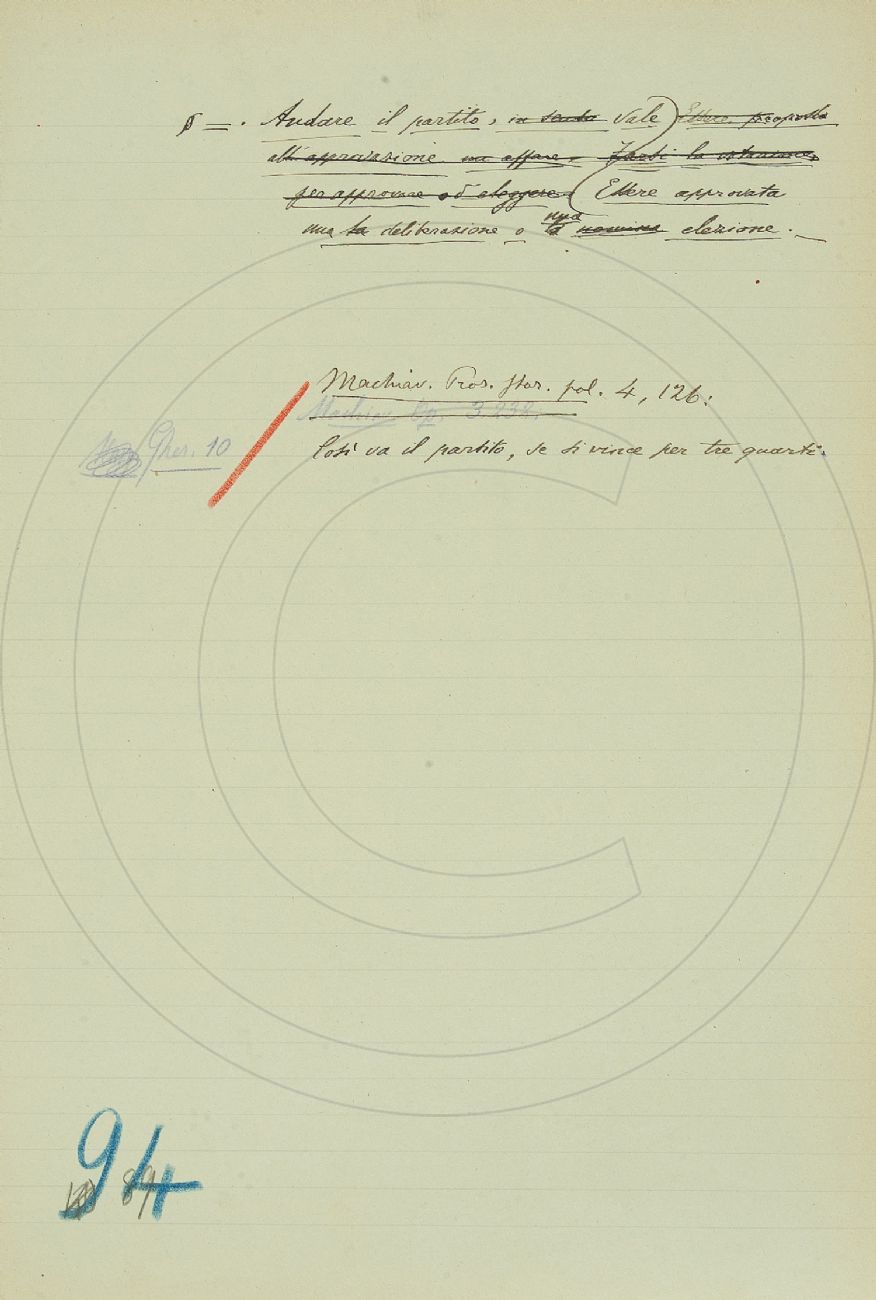 § = . Andare il partito, in senso vale Essere proposto
all'approvazione un affare, Farsi la votazione,
per approvare od eleggere Essere approvata
una la deliberazione o la una nomina elezione. _
Machiav. Pros. stor. pol. 4, 126:
Machiav. Op. 3. 234.
Gher. 10
Così va il partito, se si vince per tre quarti.
94
89